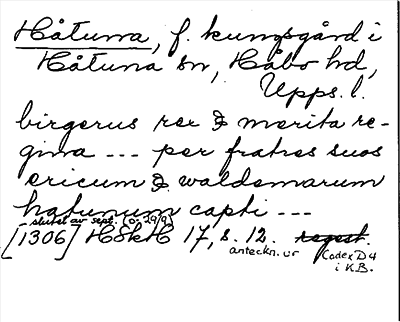 Håtuna, f. kungsgård i
Håtuna sn, Håbo hd,
Upps. l.
birgerus rex & merita re-
gina --- per fratres suos
ericum & waldemarum
hatunum capti ---
slutet av sept. (o. 29/9)
[1306] HSkH 17, s. 12. regest.
anteckn. ur Codex D4
i K.B.